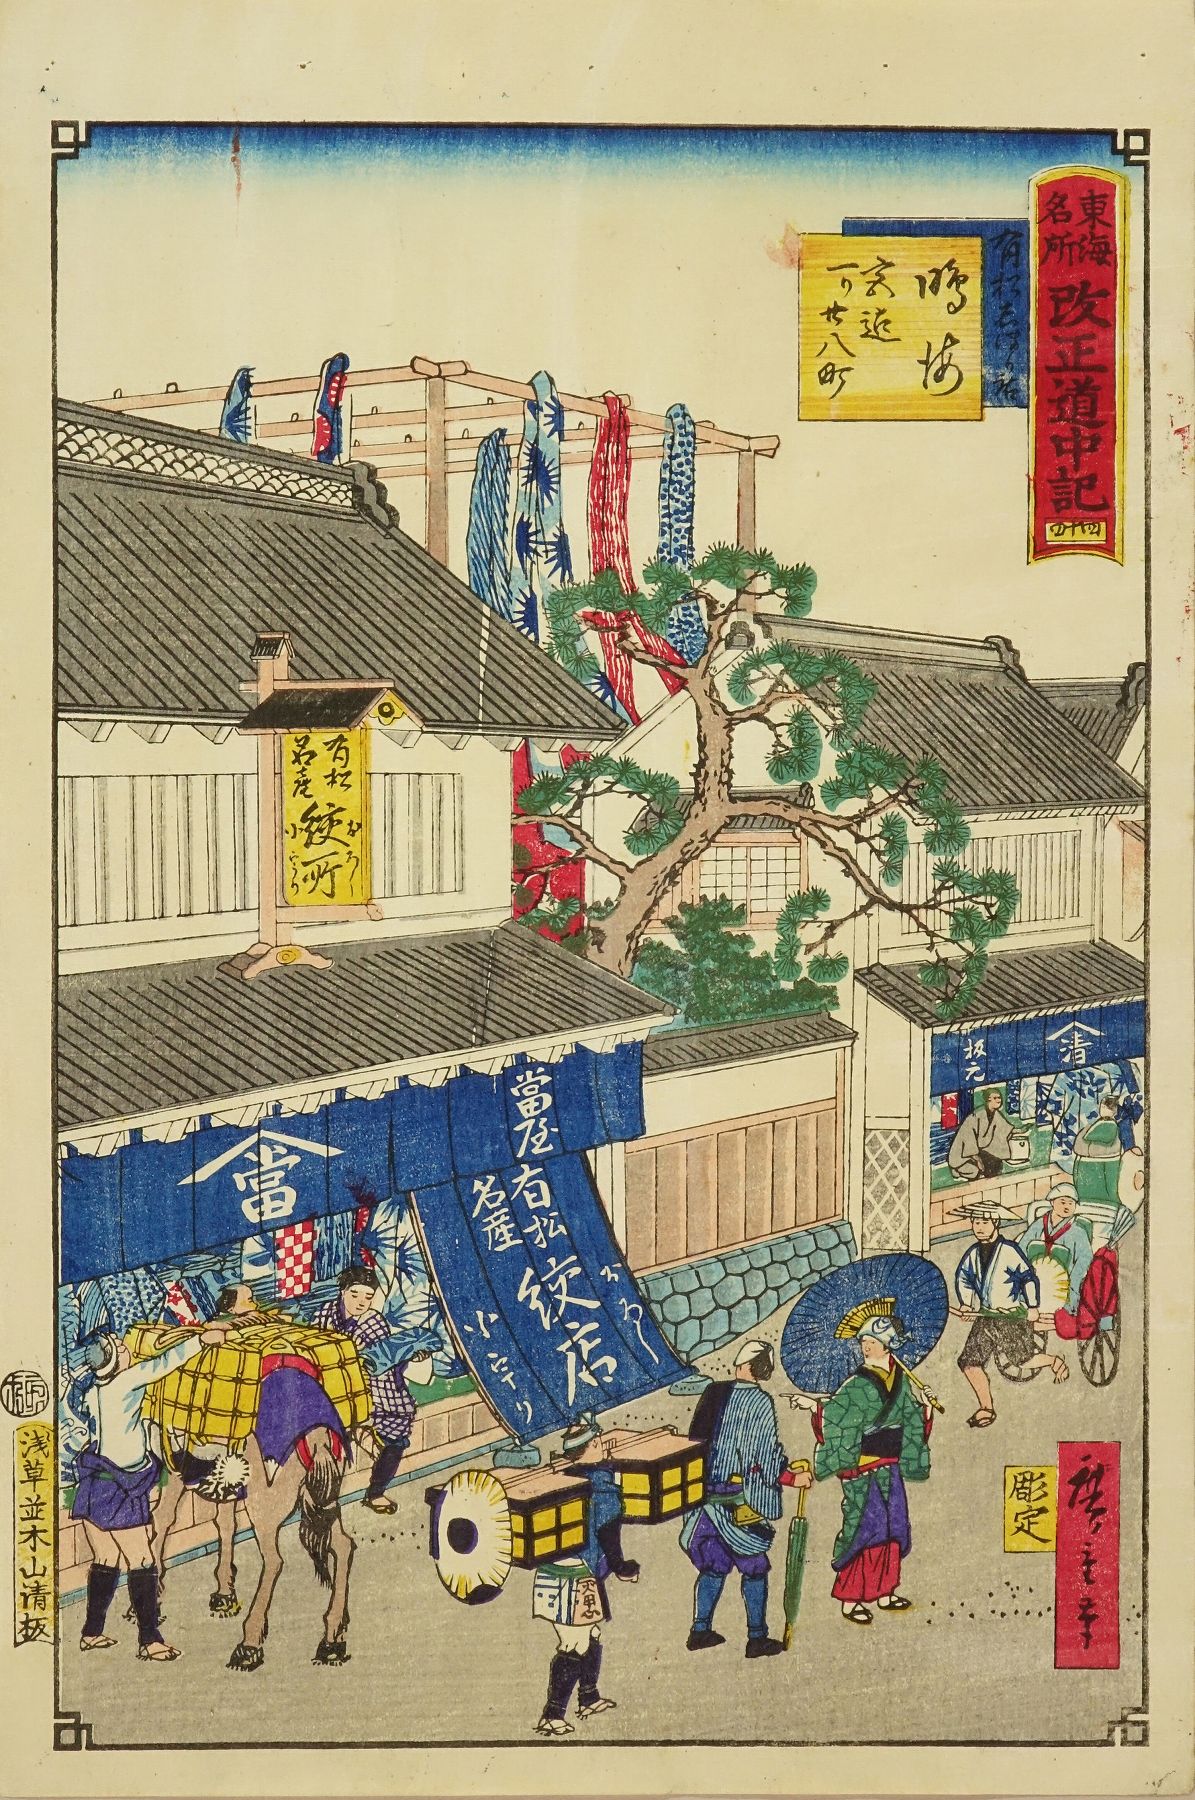 東海
名所
改正道中記
四十四
有松志ぼり店
鳴海
宮迄
一り廿八町
有松
名産
絞所
おろし
小うり
當
當屋
有松
名産
絞店
おろし
小うり
清
板元
彫定
廣重筆
浅草並木山清板